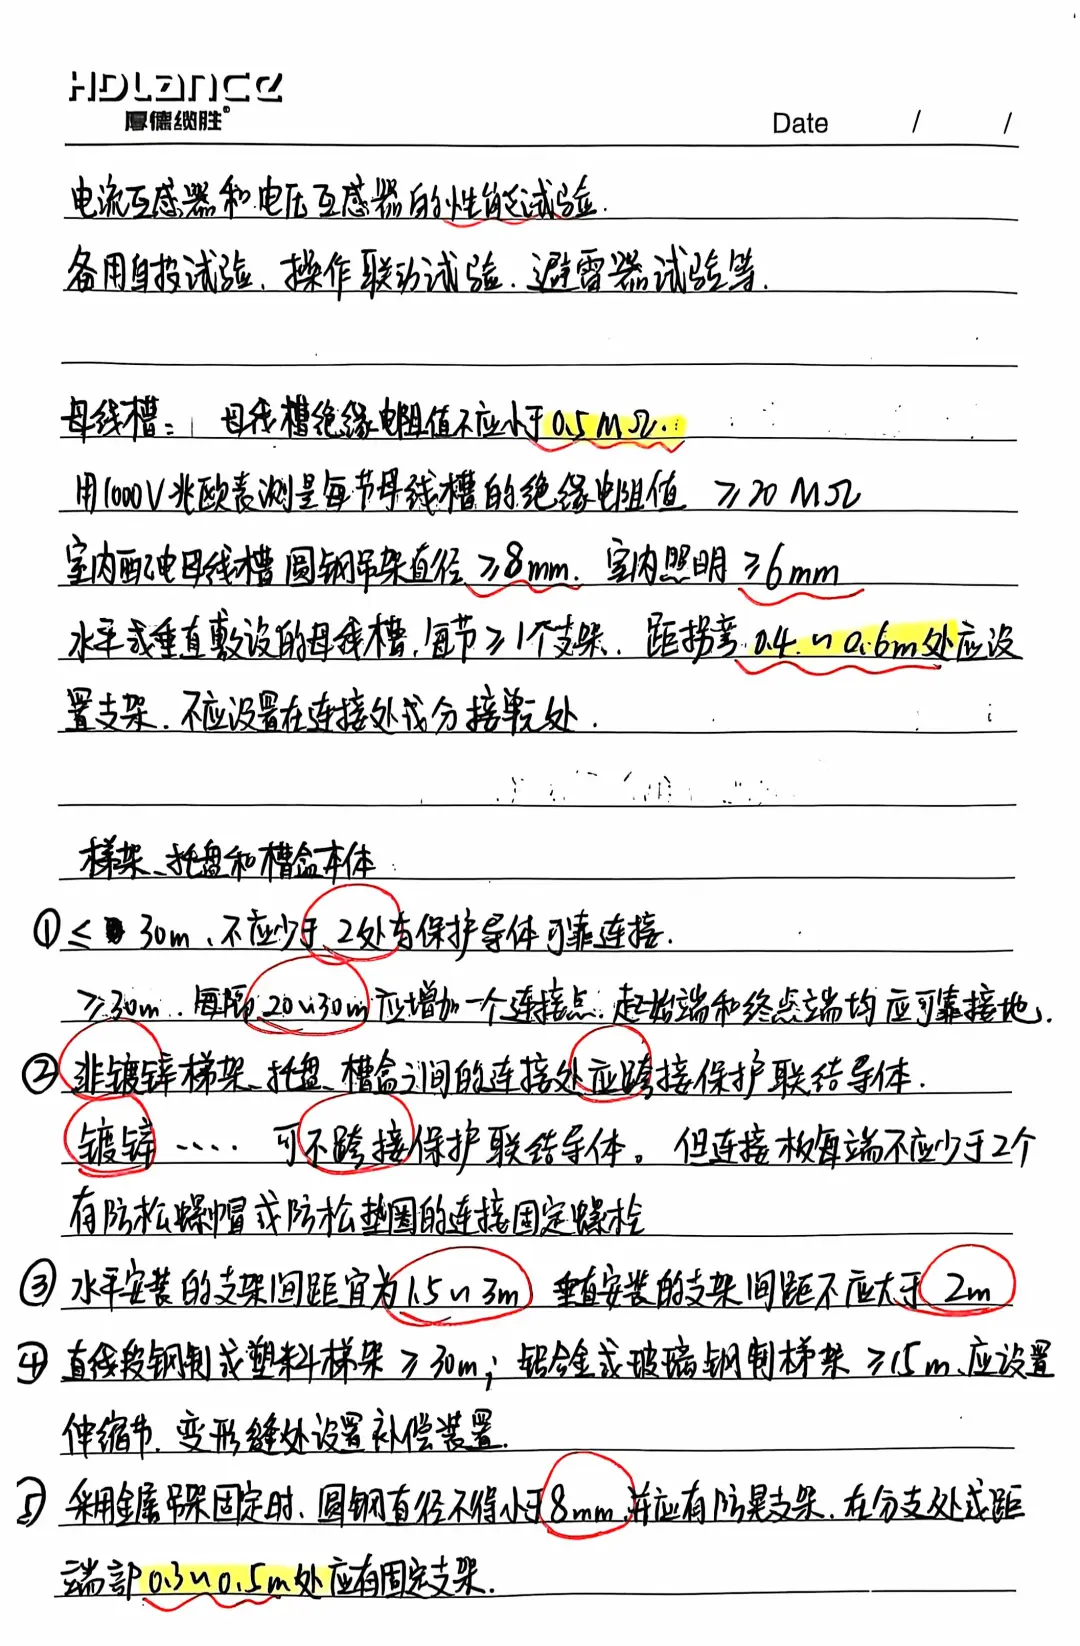 HDLANCE
厚德缆胜®
Date / /
电流互感器和电压互感器的性能试验.
备用自投试验、操作联动试验、避雷器试验等.
母线槽: 母线槽绝缘电阻值不应小于0.5MΩ.
用1000V兆欧表测量每节母线槽的绝缘电阻值 ≥20MΩ
室内配电母线槽圆钢吊架直径≥8mm. 室内照明≥6mm
水平或垂直敷设的母线槽,每节≥1个支架、距拐弯0.4~0.6m处应设
置支架.不应设置在连接处或分接单元处.
梯架、托盘和槽盒本体:
①≤30m、不应少于2处与保护导体可靠连接.
≥30m.每隔20~30m应增加一个连接点.起始端和终点端均应可靠接地.
②非镀锌梯架、托盘、槽盒之间的连接处应跨接保护联结导体.
镀锌…. 可不跨接保护联结导体。但连接板每端不应少于2个
有防松螺帽或防松垫圈的连接固定螺栓
③水平安装的支架间距宜为1.5~3m 垂直安装的支架间距不应大于2m
④直线段钢制或塑料梯架≥30m;铝合金或玻璃钢制梯架≥15m、应设置
伸缩节.变形缝处设置补偿装置.
⑤采用金属吊架固定时、圆钢直径不得小于8mm.并应有防晃支架.在分支处或距
端部0.3~0.5m处应有固定支架.